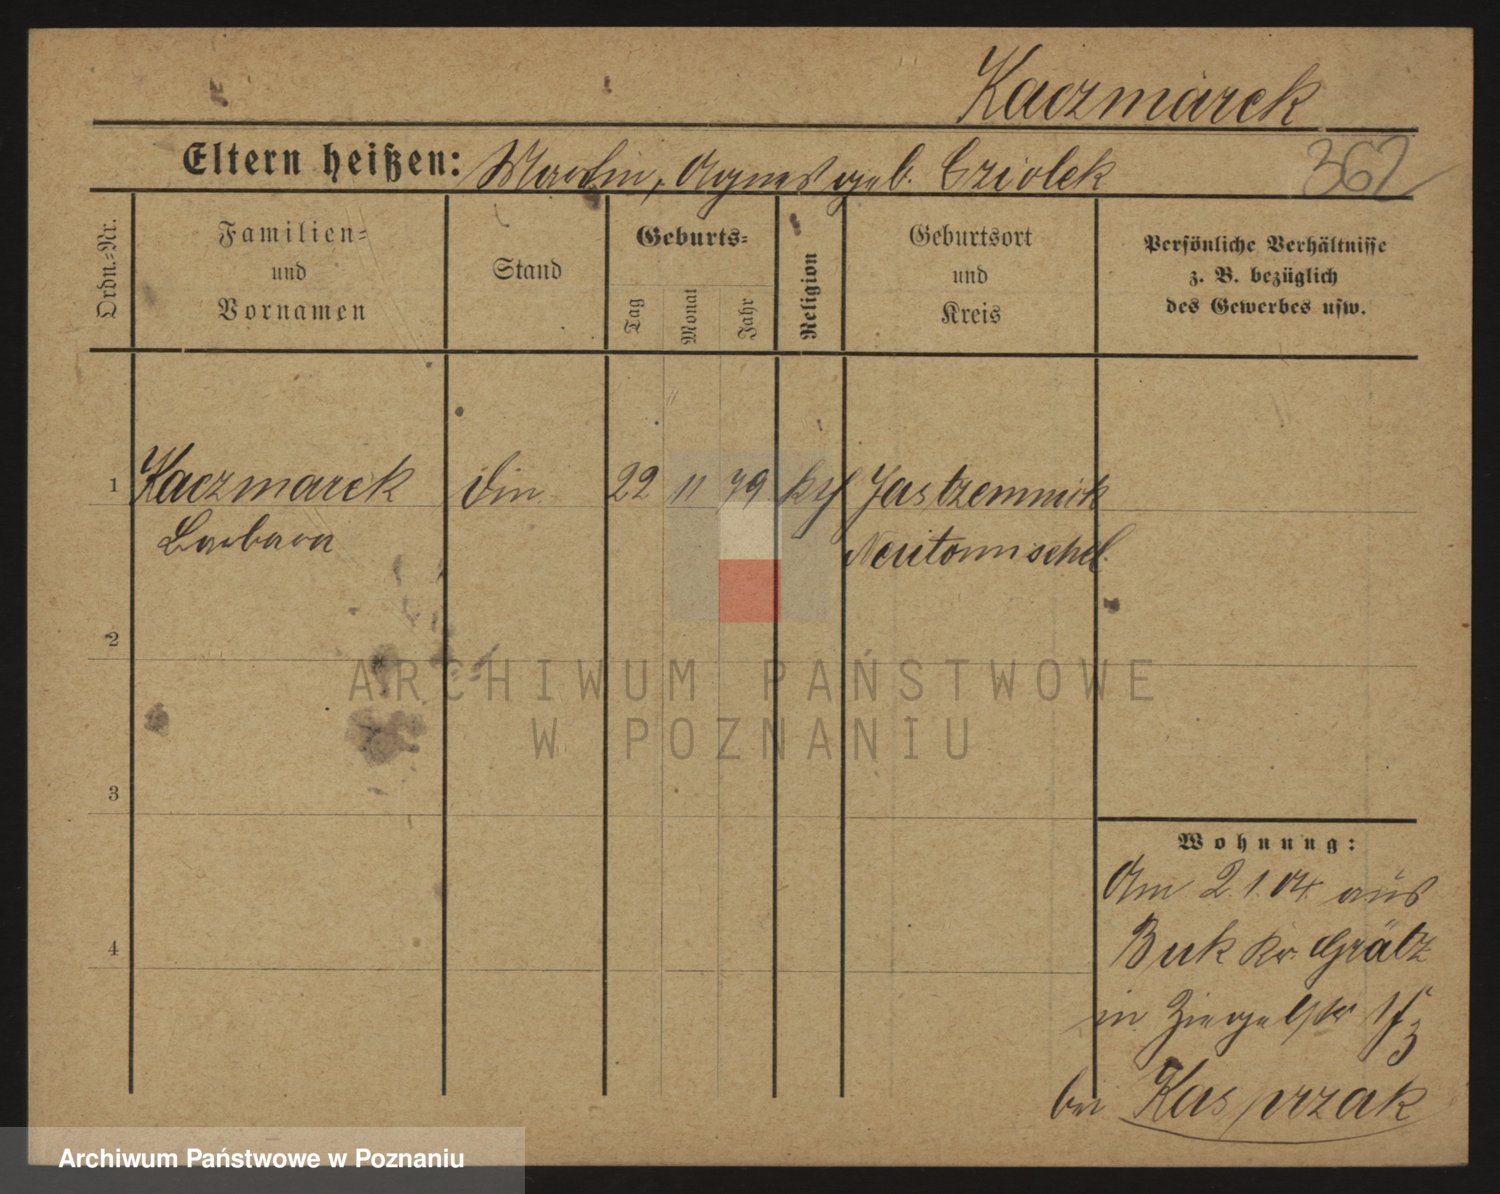 Kaczmarek
Eltern heißen: Martin, Agnes geb. Cziolek
362
Ordn.-Nr.
Familien-
und
Vornamen
Stand
Geburts-
Tag
Monat
Jahr
Religion
Geburtsort
und
Kreis
Persönliche Verhältnisse
z. B. bezüglich
des Gewerbes usw.
1 Kaczmarek din 22 11 79 kth Jastzemnik
Barbara Neutomischel
2
ARCHIWUM PAŃSTWOWE
W POZNANIU
3
Wohnung:
Am 2.1.04. aus
4 Buk Kr. Grätz
in Ziegelstr
bei Kasprzak
Archiwum Państwowe w Poznaniu